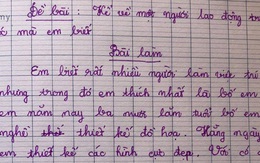 Đề bài: Kể về một người lao động trí
óc mà em biết
Bài làm
Em biết rất nhiều người làm việc trí
nhưng trong đó em thích nhất là bố em
em năm nay ba mươi lăm tuổi bố em
nghề thiết kế đồ họa. Hằng ngày
em thiết kế các hình cực đẹp. Với cô